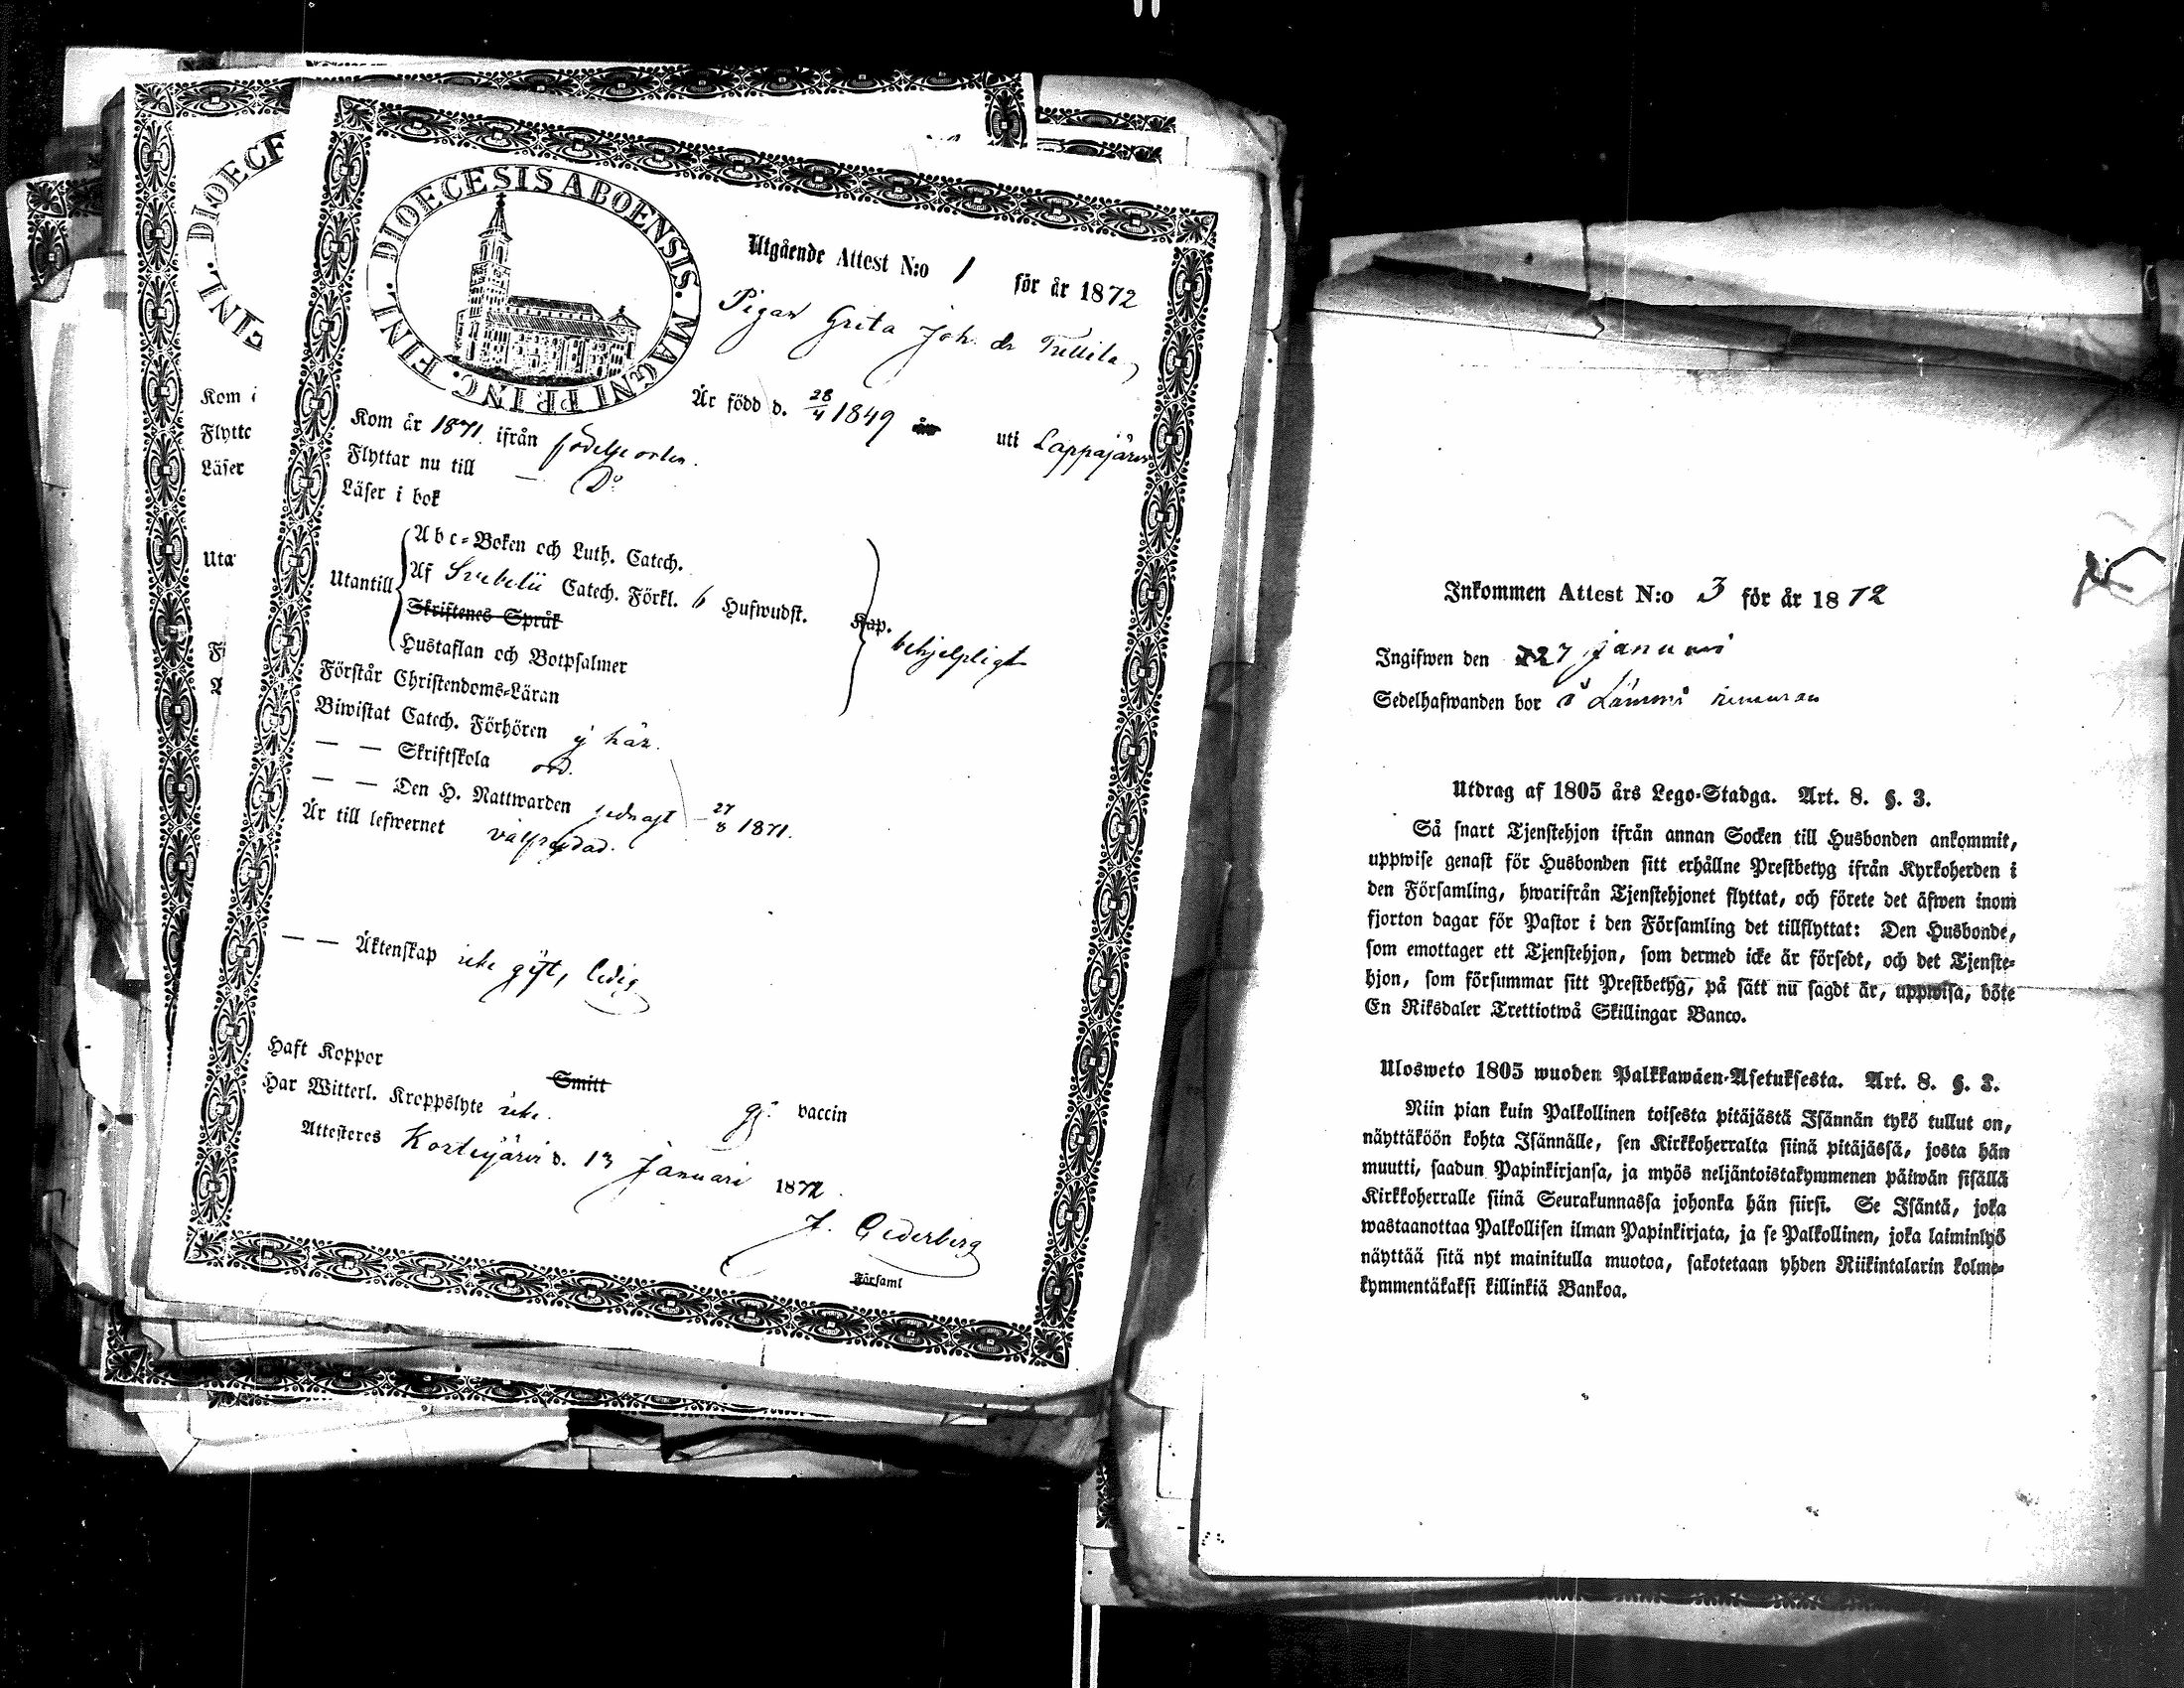 DIOECE
FINL.
Kom i
Flytte
Läser
Uta
DIOECESIS ABOENSIS. MAGNI PRINC. FINL.
Utgående Attest N:o 1 för år 1872
Pigan Grita Joh. dr
Är född d. 28/4 1849 uti Lappajärvi
Kom år 1871. ifrån födelse orten.
Flyttar nu till — Do
Läser i bok
Abc-Boken och Luth. Catech.
Utantill Af Svebelii Catech. Förkl. 6 Hufwudst.
Skriftenes Språk Kap. behjelpligt
Hustaflan och Botpsalmer
Förstår Christendoms-Läran
Biwistat Catech. Förhören ej här.
— — Skriftskola
— — Den H. Nattwarden sednast 27/8 1871.
Är till lefwernet välfrejdad.
— — Äktenskap icke gift, ledig
Haft Koppor Smitt
Har Witterl. Kroppslyte icke. vaccin
Attesteras Kortesjärvi d. 13 Januari 1872.
J. Cederberg
Församl
Inkommen Attest N:o 3 för år 1872
Ingifwen den 27 januari
Sedelhafwanden bor å
Utdrag af 1805 års Lego-Stadga. Art. 8. §. 3.
Så snart Tjenstehjon ifrån annan Socken till Husbonden ankommit,
uppwise genast för Husbonden sitt erhållne Prestbetyg ifrån Kyrkoherden i
den Församling, hwarifrån Tjenstehjonet flyttat, och förete det äfwen inom
fjorton dagar för Pastor i den Församling det tillflyttat: Den Husbonde,
som emottager ett Tjenstehjon, som dermed icke är försedt, och det Tjenste-
hjon, som försummar sitt Prestbetyg, på sätt nu sagdt är, uppwisa, böte
En Riksdaler Trettiotwå Skillingar Banco.
Ulosweto 1805 wuoden Palkkawäen-Asetuksesta. Art. 8. §. 3.
Niin pian kuin Palkollinen toisesta pitäjästä Isännän tykö tullut on,
näyttäköön kohta Isännälle, sen Kirkkoherralta siinä pitäjässä, josta hän
muutti, saadun Papinkirjansa, ja myös neljäntoistakymmenen päiwän sisällä
Kirkkoherralle siinä Seurakunnassa johonka hän siirsi. Se Isäntä, joka
wastaanottaa Palkollisen ilman Papinkirjata, ja se Palkollinen, joka laiminlyö
näyttää sitä nyt mainitulla muotoa, sakotetaan yhden Riikintalarin kolme-
kymmentäkaksi killinkiä Bankoa.